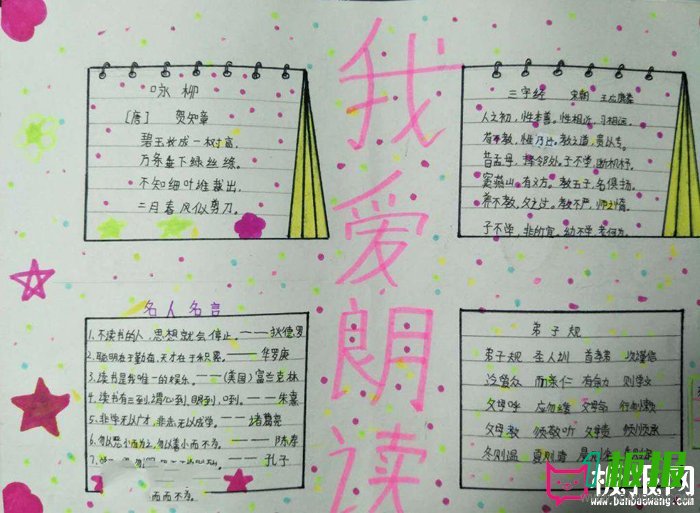 咏柳
[唐] 贺知章
碧玉妆成一树高,
万条垂下绿丝绦。
不知细叶谁裁出,
二月春风似剪刀。
我爱朗读
三字经 宋朝 王应麟
人之初,性本善。性相近,习相远。
苟不教,性乃迁。教之道,贵以专。
昔孟母,择邻处。子不学,断机杼。
窦燕山,有义方。教五子,名俱扬。
养不教,父之过。教不严,师之惰。
子不学,非所宜。幼不学,老何为。
名人名言
1、不读书的人,思想就会停止。——狄德罗
2、聪明在于勤奋,天才在于积累。——华罗庚
3、读书是我唯一的娱乐。——(美国)富兰克林
4、读书有三到,谓心到,眼到,口到。——朱熹
5、非学无以广才,非志无以成学。——诸葛亮
6、勿以恶小而为之,勿以善小而不为。——陈寿
7、——孔子
而不为。
弟子规
弟子规 圣人训 首孝弟 次谨信
泛爱众 而亲仁 有余力 则学文
父母呼 应勿缓 父母命 行勿懒
父母教 须敬听 父母责 须顺承
冬则温 夏则凊
板报网
www.banbaowang.com